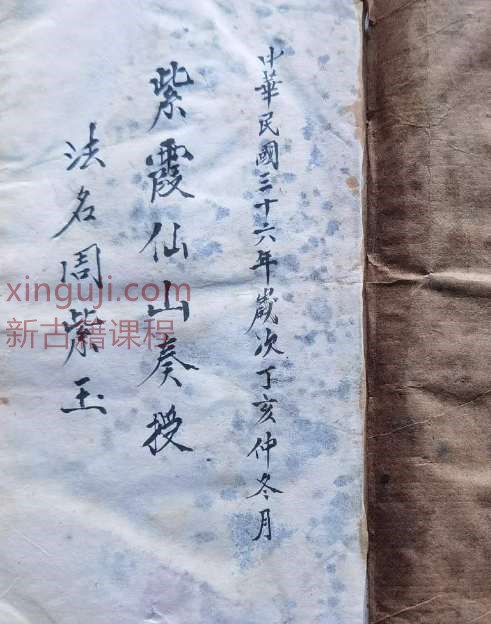 中華民國三十六年歲次丁亥仲冬月
紫霞仙山奏授
法名周紫玉
xinguji.com
新古籍课程